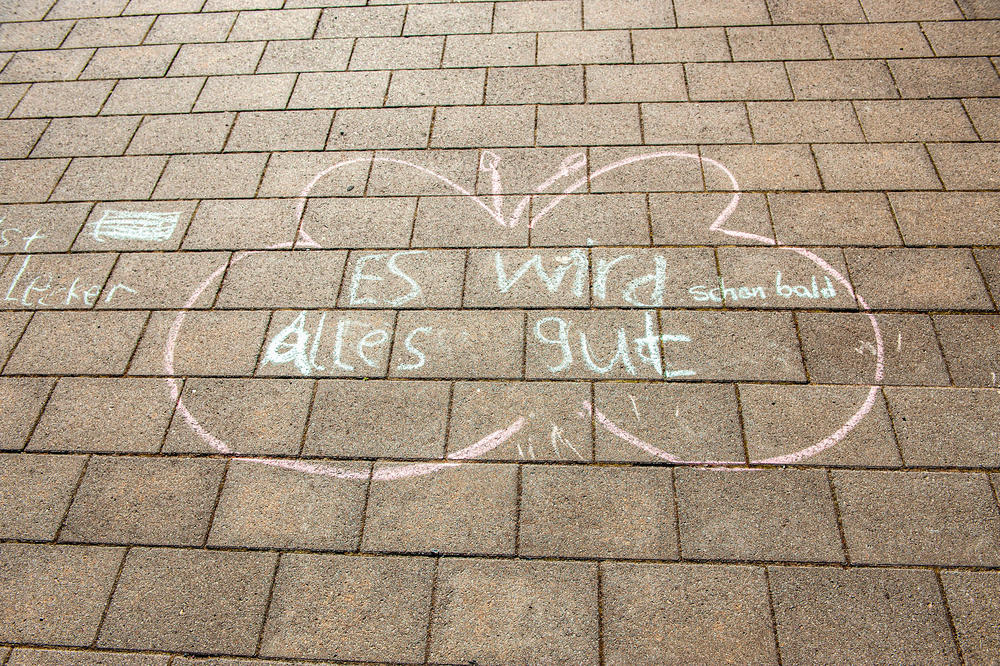 st
Lecker
ES wird schon bald
Alles gut